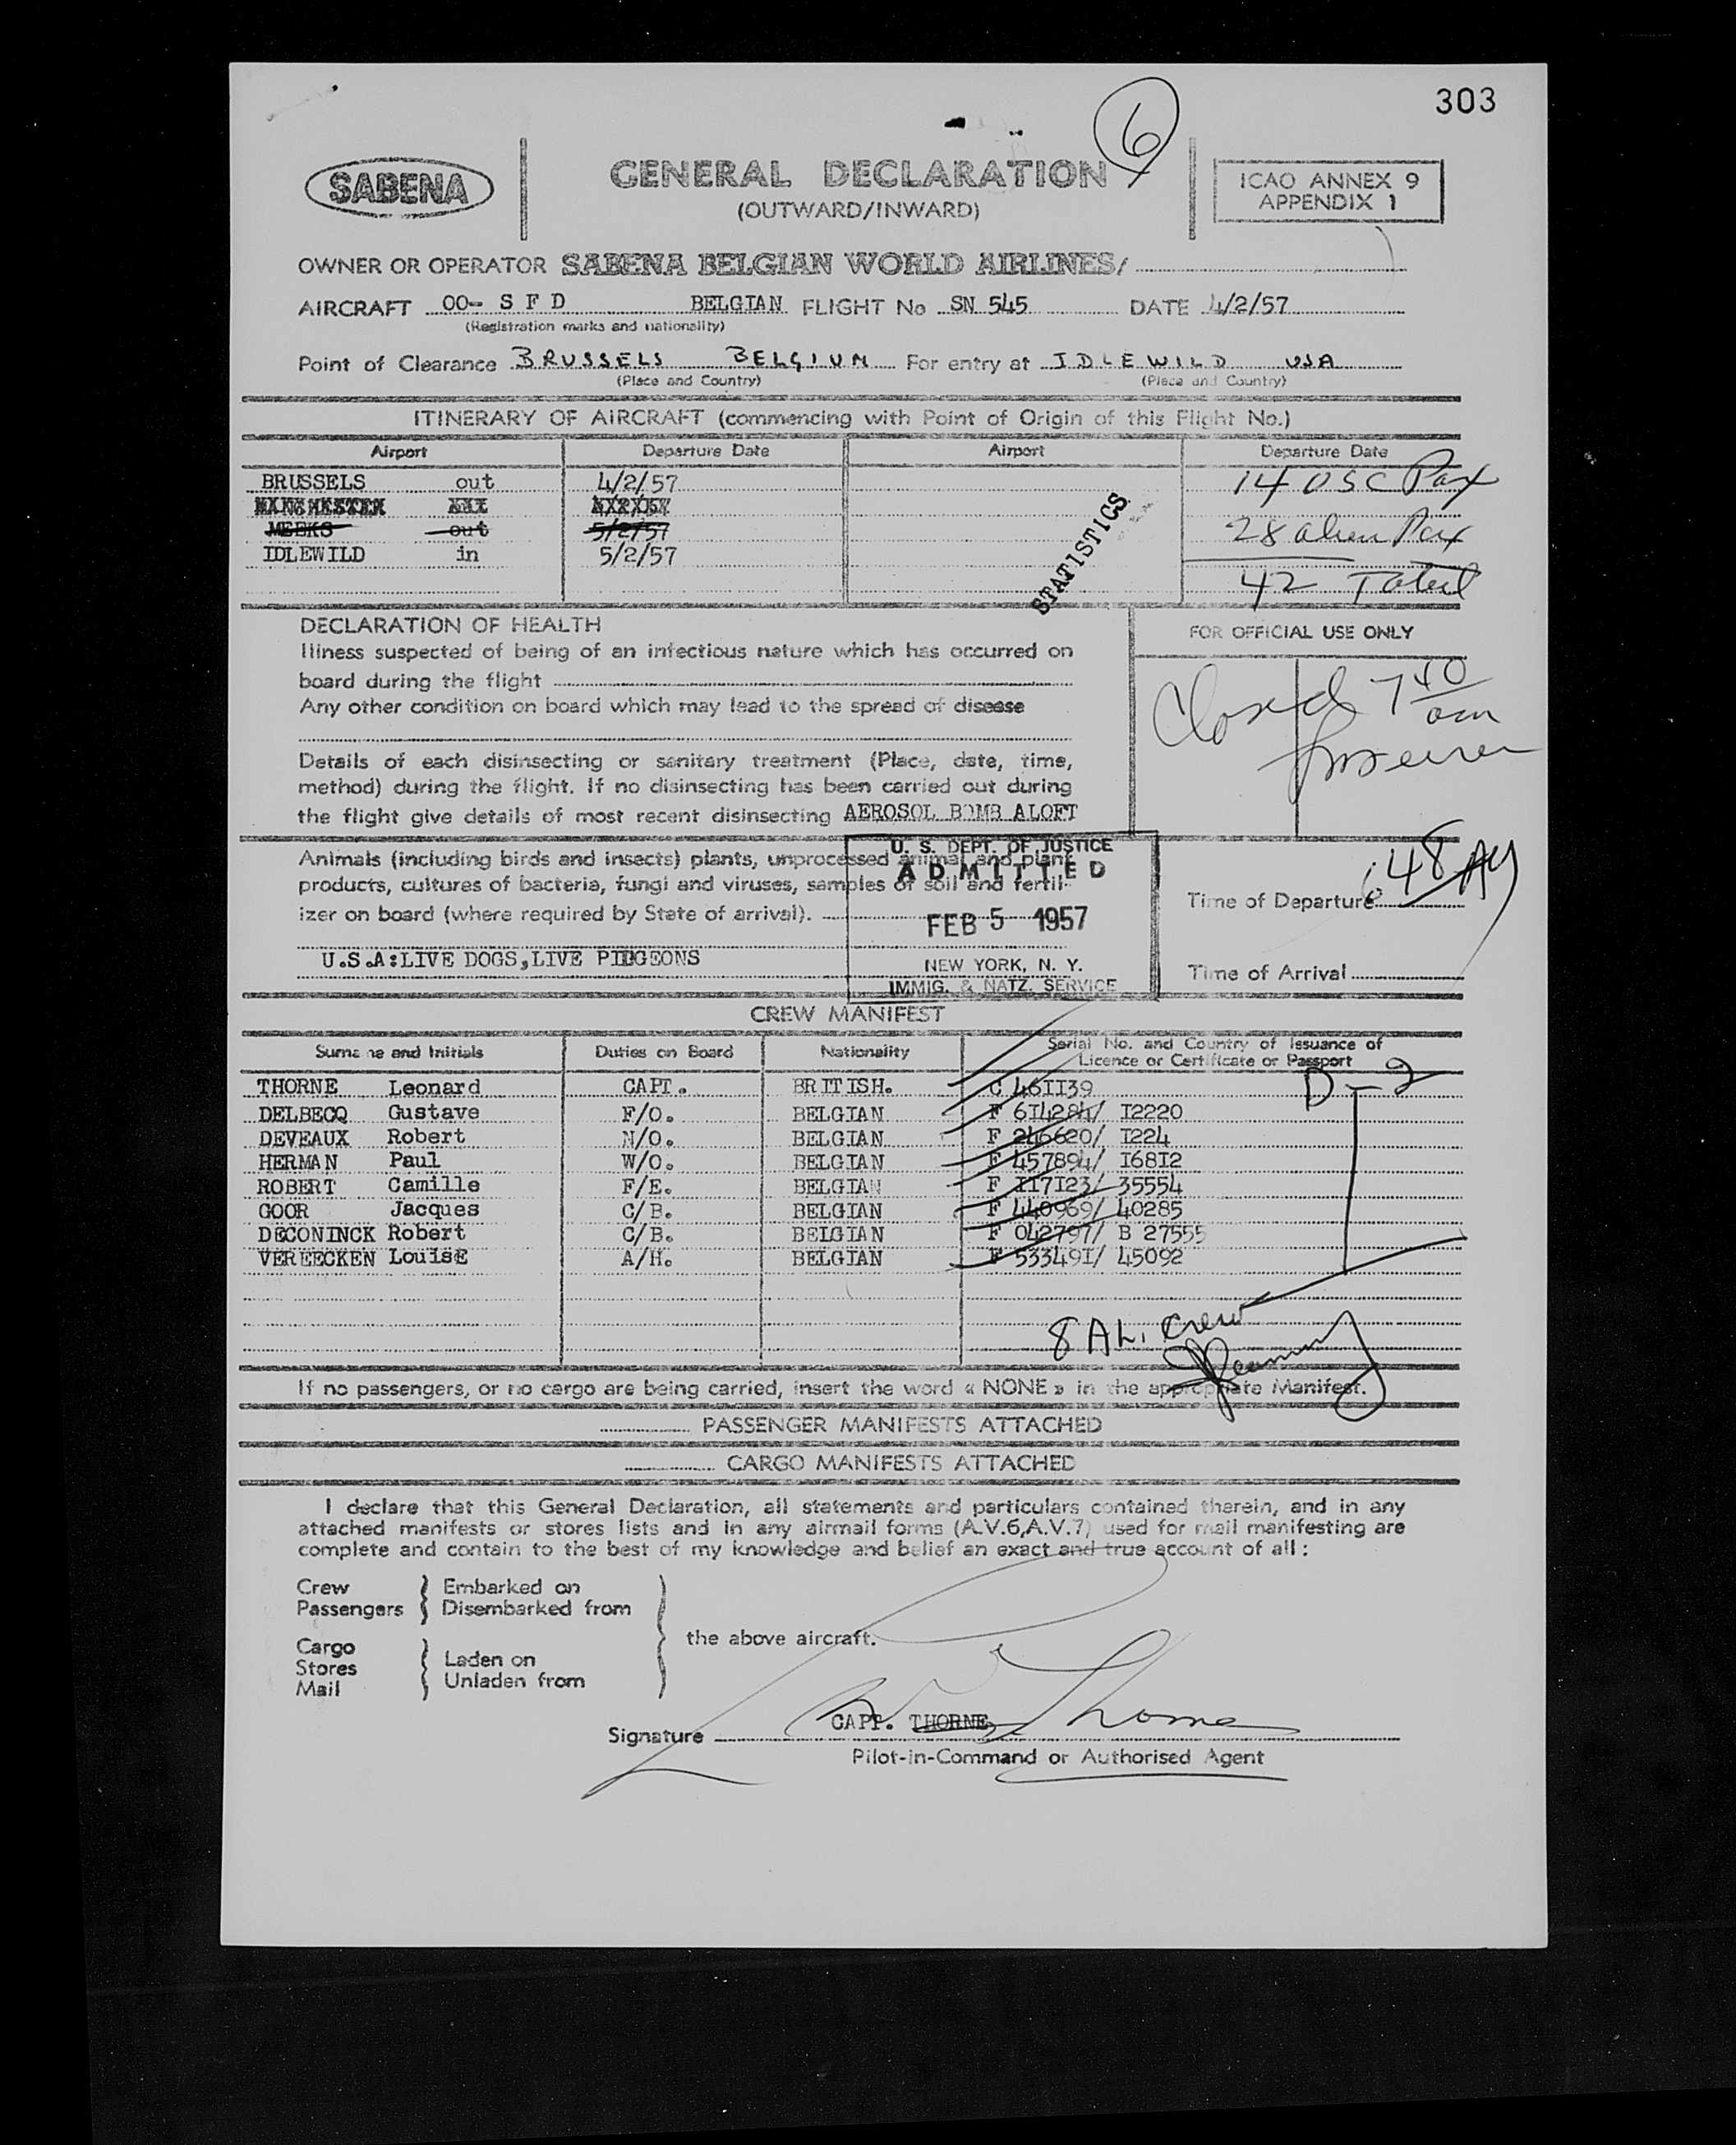 303
6
SABENA
GENERAL DECLARATION
(OUTWARD/INWARD)
ICAO ANNEX 9
APPENDIX 1
OWNER OR OPERATOR SABENA BELGIAN WORLD AIRLINES/
AIRCRAFT OO- S F D BELGIAN FLIGHT No SN 545 DATE 4/2/57
(Registration marks and nationality)
Point of Clearance BRUSSELS BELGIUM For entry at IDLEWILD USA
(Place and Country) (Place and Country)
ITINERARY OF AIRCRAFT (commencing with Point of Origin of this Flight No.)
Airport Departure Date Airport Departure Date
BRUSSELS out 4/2/57 14 USC Pax
MANCHESTER
MEEKS out 5/2/57 28 alien Pax
IDLEWILD in 5/2/57
42 Total
STATISTICS
DECLARATION OF HEALTH
Illness suspected of being of an infectious nature which has occurred on
board during the flight
Any other condition on board which may lead to the spread of disease
Details of each disinsecting or sanitary treatment (Place, date, time,
method) during the flight. If no disinsecting has been carried out during
the flight give details of most recent disinsecting AEROSOL BOMB ALOFT
FOR OFFICIAL USE ONLY
Closed 7 40
am
Animals (including birds and insects) plants, unprocessed animal and plant
products, cultures of bacteria, fungi and viruses, samples of soil and fertil-
izer on board (where required by State of arrival).
U.S.A:LIVE DOGS,LIVE PIDGEONS
U. S. DEPT. OF JUSTICE
ADMITTED
FEB 5 1957
NEW YORK, N. Y.
IMMIG. & NATZ. SERVICE
Time of Departure 6:48
Time of Arrival
CREW MANIFEST
Surname and Initials Duties on Board Nationality Serial No. and Country of Issuance of
Licence or Certificate or Passport
D-2
THORNE Leonard CAPT. BRITISH. C 46II39
DELBECQ Gustave F/O. BELGIAN F 6I4284/ I2220
DEVEAUX Robert N/O. BELGIAN F 246620/ I224
HERMAN Paul W/O. BELGIAN F 457894/ I68I2
ROBERT Camille F/E. BELGIAN F II7I23/ 35554
GOOR Jacques C/B. BELGIAN F 440969/ 40285
DECONINCK Robert C/B. BELGIAN F 042797/ B 27555
VEREECKEN LouisE A/H. BELGIAN F 53349I/ 45092
8 AL. Crew
If no passengers, or no cargo are being carried, insert the word « NONE » in the appropriate Manifest.
PASSENGER MANIFESTS ATTACHED
CARGO MANIFESTS ATTACHED
I declare that this General Declaration, all statements and particulars contained therein, and in any
attached manifests or stores lists and in any airmail forms (A.V.6,A.V.7) used for mail manifesting are
complete and contain to the best of my knowledge and belief an exact and true account of all :
Crew
Passengers
Embarked on
Disembarked from
Cargo
Stores
Mail
Laden on
Unladen from
the above aircraft.
Signature CAPT. THORNE
Pilot-in-Command or Authorised Agent